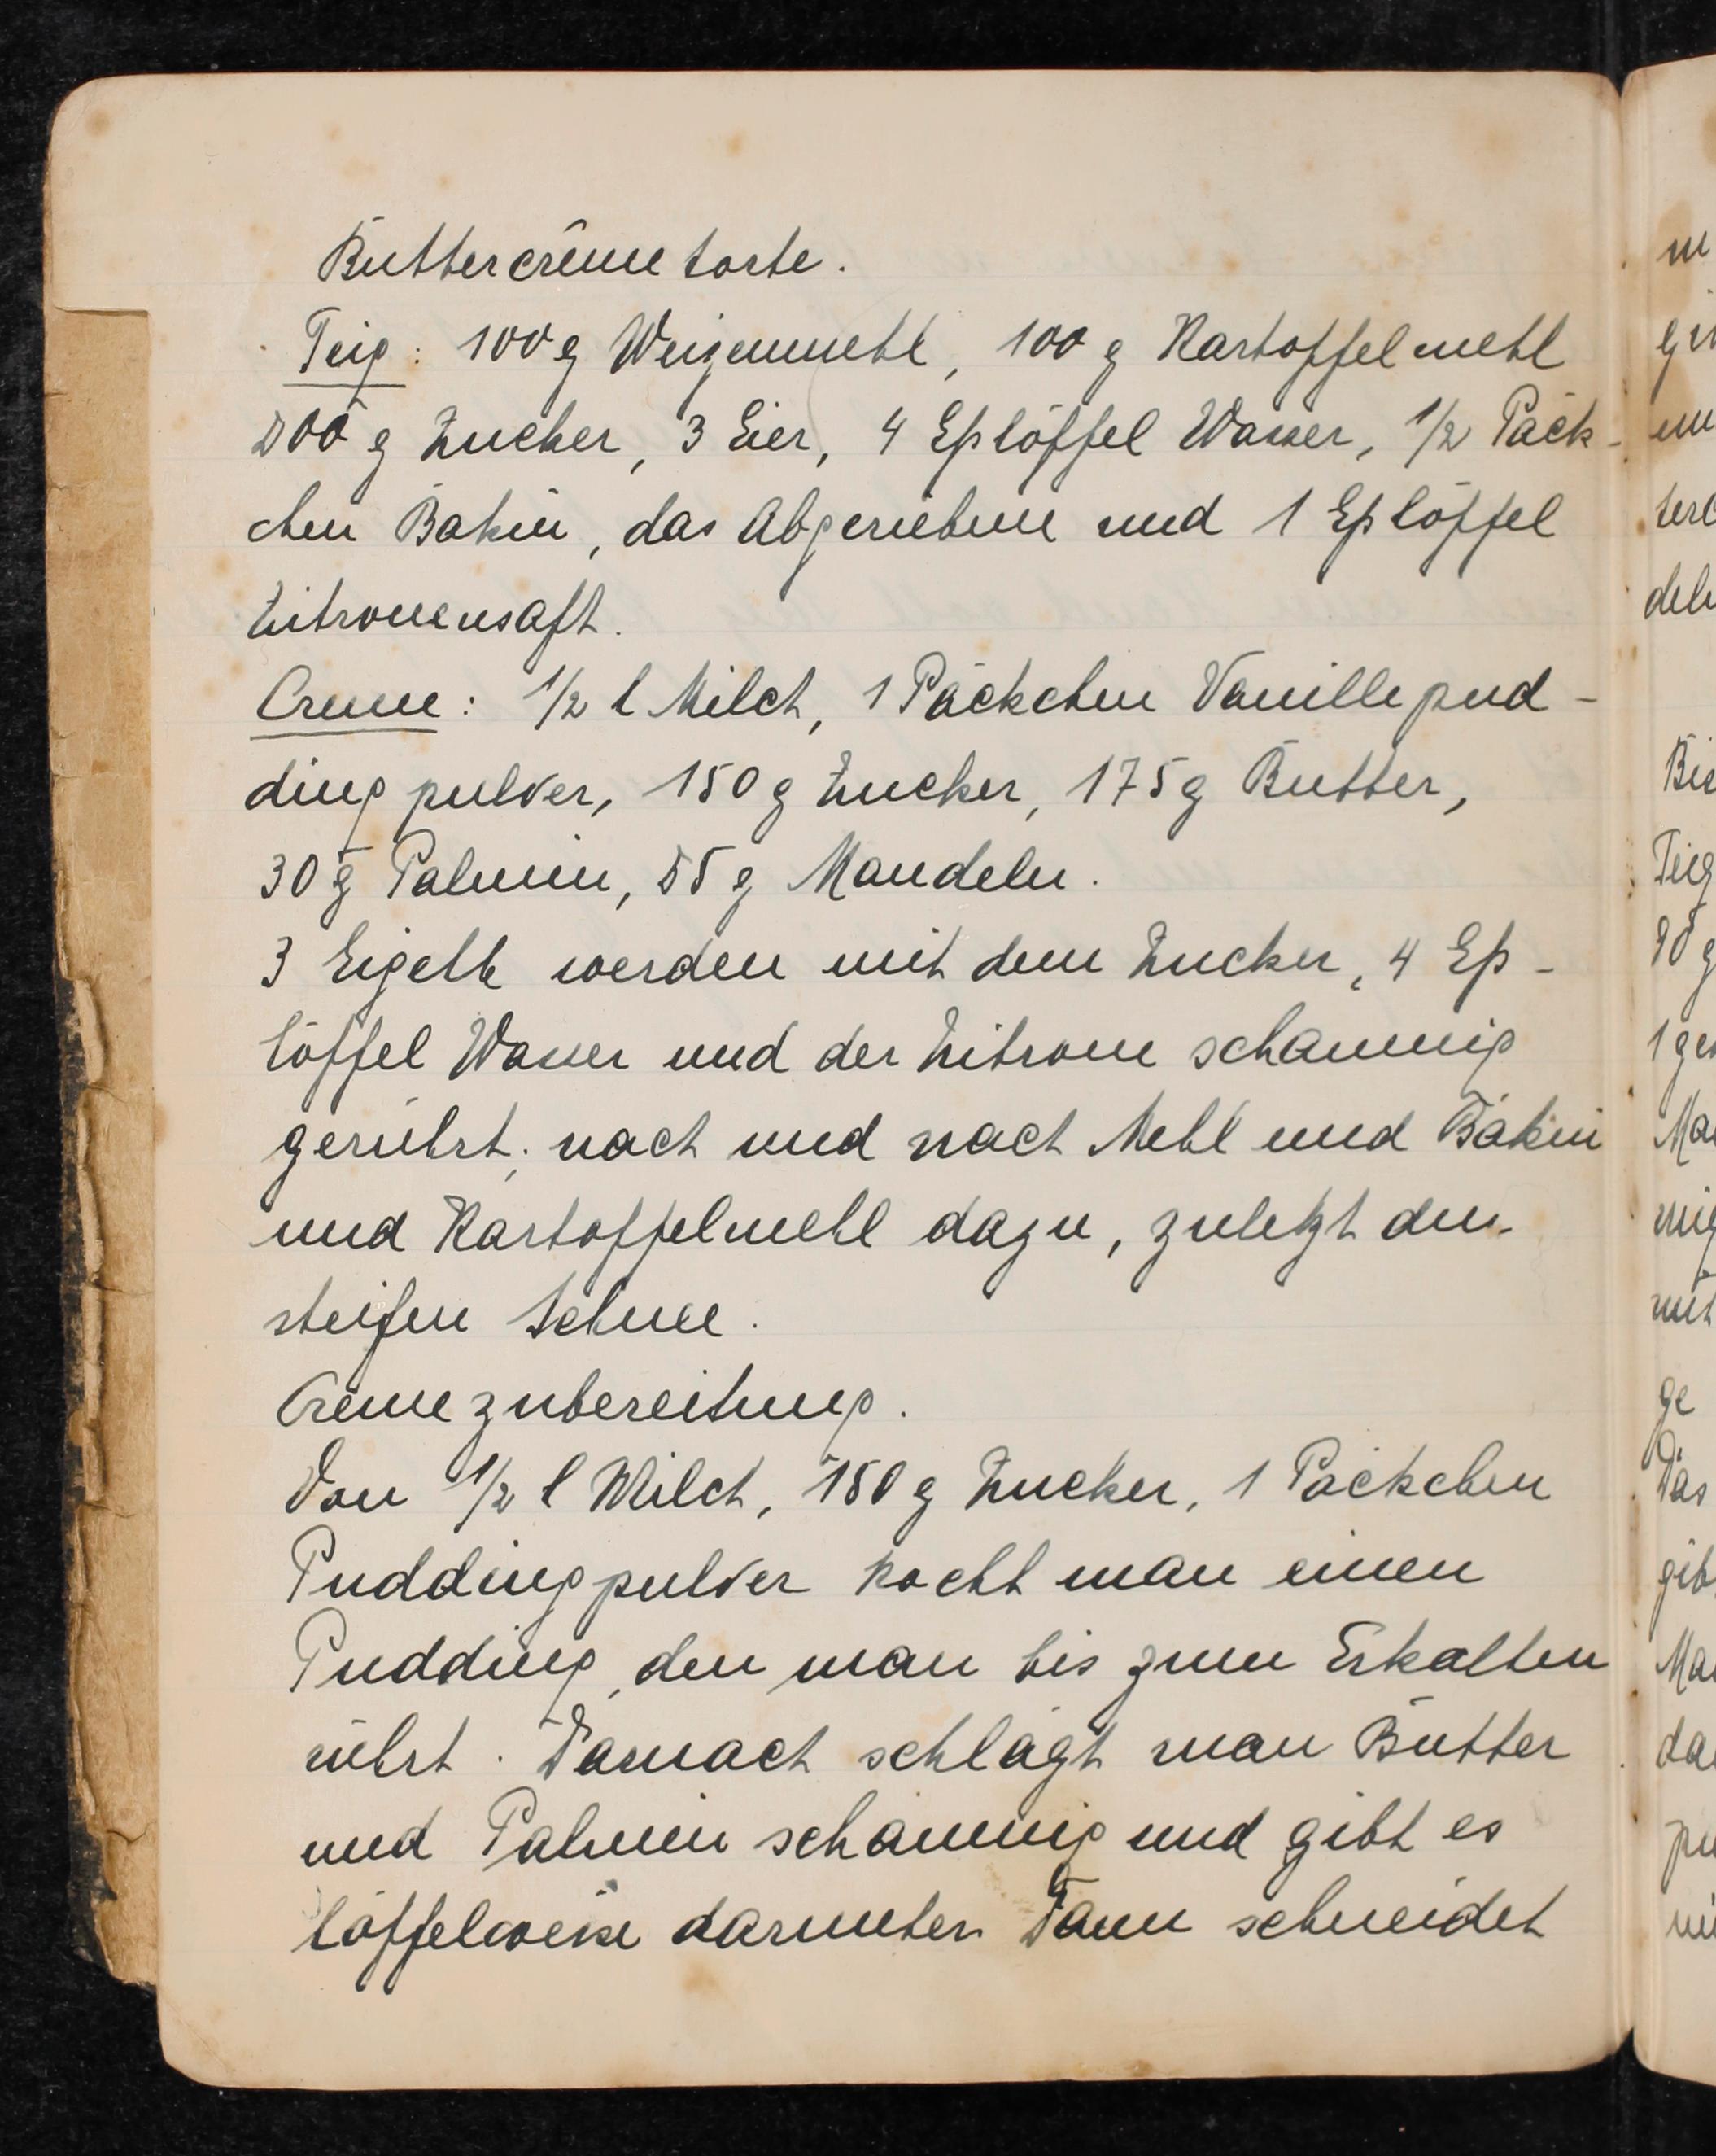 Buttercrêmetorte.
Teig: 100 g Weizenmehl, 100 g Kartoffelmehl
200 g Zucker, 3 Eier, 4 Eßlöffel Wasser, 1/2 Päck-
chen Bakin, das Abgeriebene und 1 Eßlöffel
Zitronensaft.
Creme: 1/2 l Milch, 1 Päckchen Vanillepud-
dingpulver, 150 g Zucker, 175 g Butter,
30 g Palmin, 55 g Mandeln.
3 Eigelb werden mit dem Zucker, 4 Eß-
löffel Wasser und der Zitrone schaumig
gerührt; nach und nach Mehl und Bakin
und Kartoffelmehl dazu, zuletzt den
steifen Schnee.
Cremezubereitung.
Von 1/2 l Milch, 150 g Zucker, 1 Päckchen
Puddingpulver kocht man einen
Pudding, den man bis zum Erkalten
rührt. Darnach schlägt man Butter
und Palmin schaumig und gibt es
löffelweise darunter. Dann schneidet